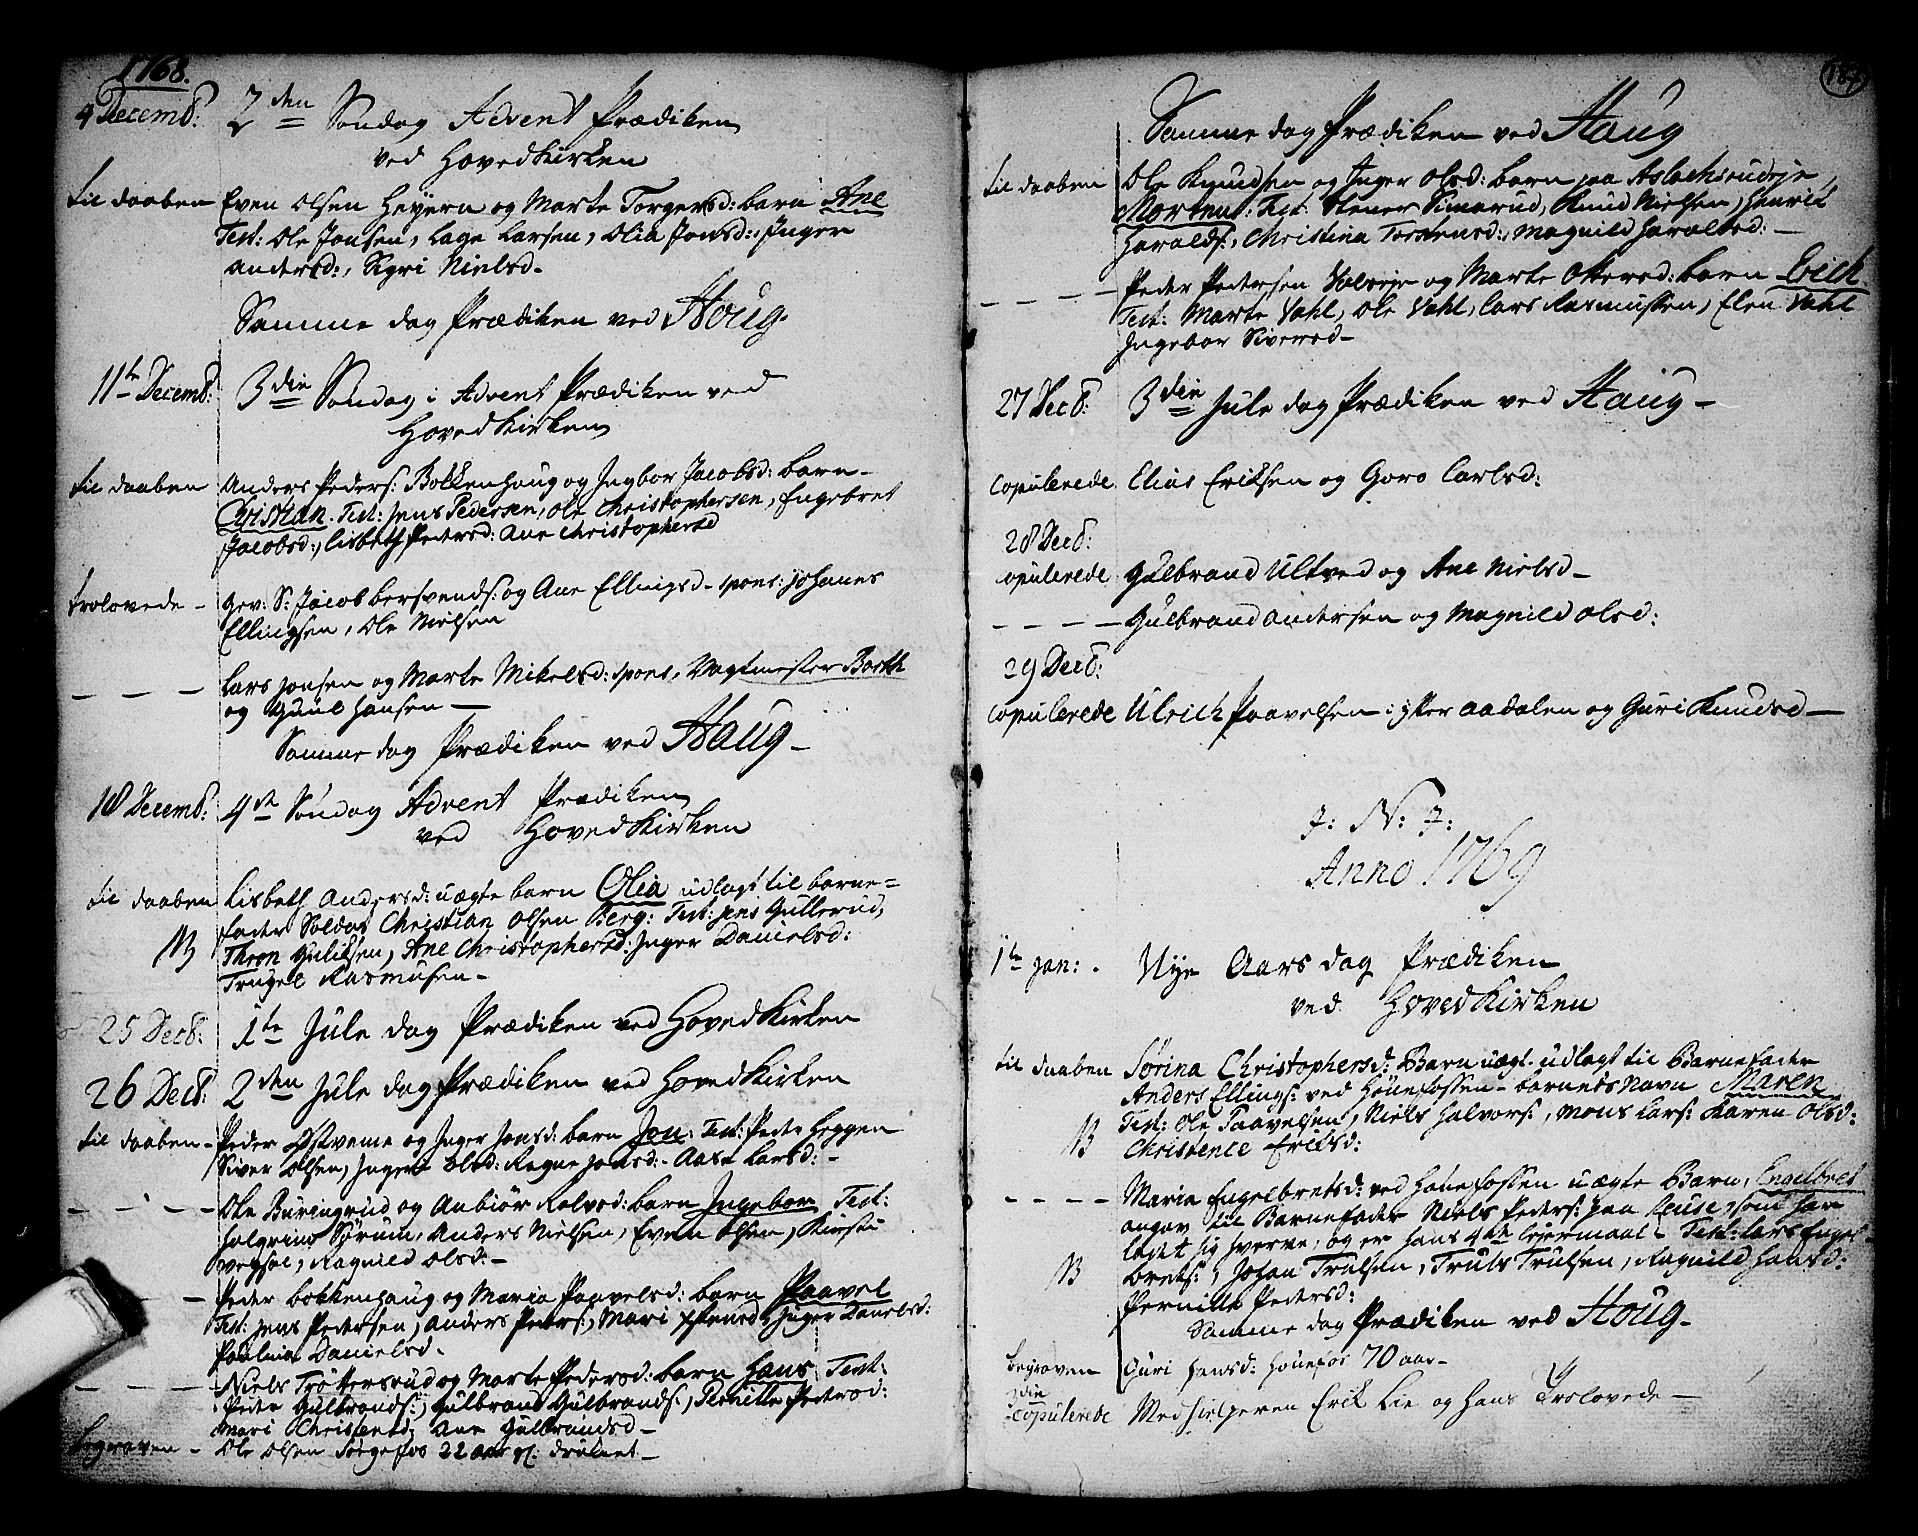 1768.
4 Decemb: 2den Søndag Advent Prædiken
ved Hovedkirken
til daaben Even Olsen Heyern og Marte Torgersd: barn Ane
Test: Ole Jonsen, Lage Larsen, Olia Jonsd:, Inger
Andersd:, Sigri Nielsd.
Samme dag Prædiken ved Haug.
11te Decemb: 3die Søndag i Advent Prædiken ved
Hovedkirken
til daaben Anders Peders: Bokkenhaug og Ingbor Jacobsd: barn
Christian. Test: Jens Pedersen, Ole Christophersen, Engebret
Jacobsd:, Lisbeth Pedersd: Ane Christophersd
trolovede - Gev: S: Jacob Bersvends: og Ane Ellingsd - spons: Johanes
Ellingsen, Ole Nielsen
- - - Lars Jonsen og Marte Mikelsd: spons, Vagtmester Barth
og Guul Hansen -
Samme dag Prædiken ved Haug -
18 Decemb: 4de Søndag Advent Prædiken
ved Hovedkirken
til daaben Lisbeth Andersd: uægte barn Olia udlagt til barne=
fader Soldat Christian Olsen Berg: Test: Jens Gullerud,
NB Thron Guliksen, Ane Christophersd: Inger Danielsd:
Trugel Rasmusen -
25 Decb: 1te Jule dag Prædiken ved Hovedkirken
26 Decb: 2den Jule dag Prædiken ved Hovedkirken
til daaben - Peder Østveme og Inger Jonsd: barn Jon. Test: Peder Heggen
Siver Olsen, Inger Olsd: Ragne Jonsd: - Aase Larsd: -
- - - - Ole Buringrud og Anbiør Rolvsd: barn Ingebor Test:
Halgrim Sørum, Anders Nielsen, Even Olsen, Kirsti
Ragnild Olsd: -
- - Peder Bokkenhaug og Maria Paavelsd: barn Paavel
Test: Jens Pedersen, Anders Peders:, Mari Inger Danielsd:
Paulina Danielsd.
- - - Niels Trøttersrud og Marte Pedersd: barn Hans, Test:
Peder Gulbrands:, Gulbrand Gulbrands:, Pernille Pedersd:
Mari Christensd, Ane Gulbrandsd -
begraven - Ole Olsen Sorgefos 22 aar gl. druknet -
187
Samme dag Prædiken ved Haug
til daaben Ole Knudsen og Inger Olsd: barn paa Aslachsrudeje,
Morten: Test: Stener Simarud, Knud Nielsen, Henrik
Haralds:, Christina Torstensd:, Magnild Haraldsd: -
- - - - Peder Pedersen og Marte Ottersd: barn Erich
Test: Marte Vahl, Ole Vahl, Lars Rasmussen, Elen Vahl
Ingebor Siversd -
27 Decb: 3die Jule dag Prædiken ved Haug -
copulerede Elias Eriksen og Goro Carlsd:
28 Decb:
copulerede Gulbrand Ultved og Ane Nielsd -
- - - - Gulbrand Andersen og Magnild Olsd:
29 Decb:
copulerede Ulrich Paavelsen i ytter Aadalen og Guri Knudsd -
J: N: J:
Anno 1769
1te Jan: . Nye Aars dag Prædiken
ved Hovedkirken
til daaben Sørina Christophersd: Barn uægt. udlagt til Barnefader
Anders Ellings: ved Hønefossen - barnets Navn Maren
Test: Ole Paavelsen, Niels Halvors:, Mons Lars: Karen Olsd:
NB Christence Eriksd:
- - - - Maria Engelbretsd: ved Hønefossen uægte Barn, Engelbret
angav til Barnefader Niels Peders: paa som har
ladet sig hverve, og er hans 4de Leiermaal - Test: Lars Engel-
NB brets:, Johan Trulsen, Truls Trulsen, Ragnild Hansd:
Pernille Pedersd:
Samme dag Prædiken ved Haug -
begraven Guri Jensd: Hønefos 70 aar -
2die
copulerede Medhielperen Erik Lie og Hans Trolovede -